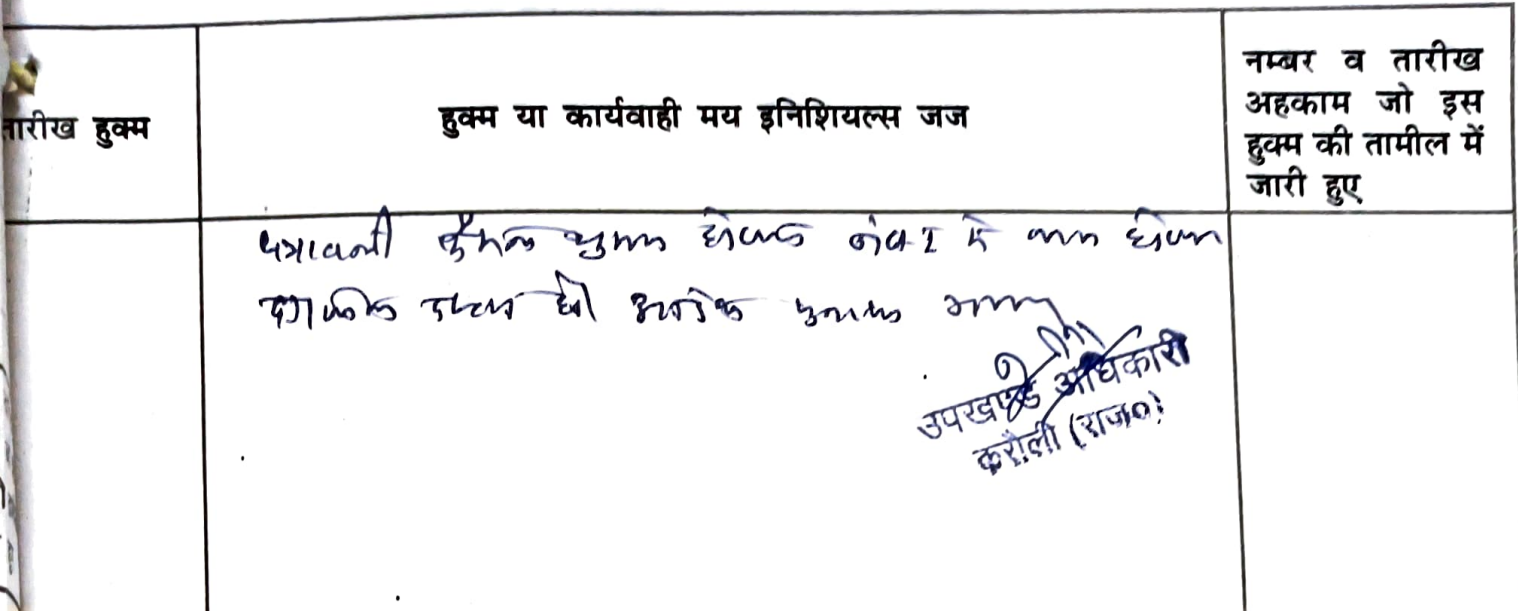 तारीख हुक्म
हुक्म या कार्यवाही मय इनिशियल्स जज
नम्बर व तारीख
अहकाम जो इस
हुक्म की तामील में
जारी हुए
पत्रावली फैसल शुमार होकर नंबर से कम होकर
दाखिल दफ्तर हो
उपखण्ड अधिकारी
करौली (राज०)